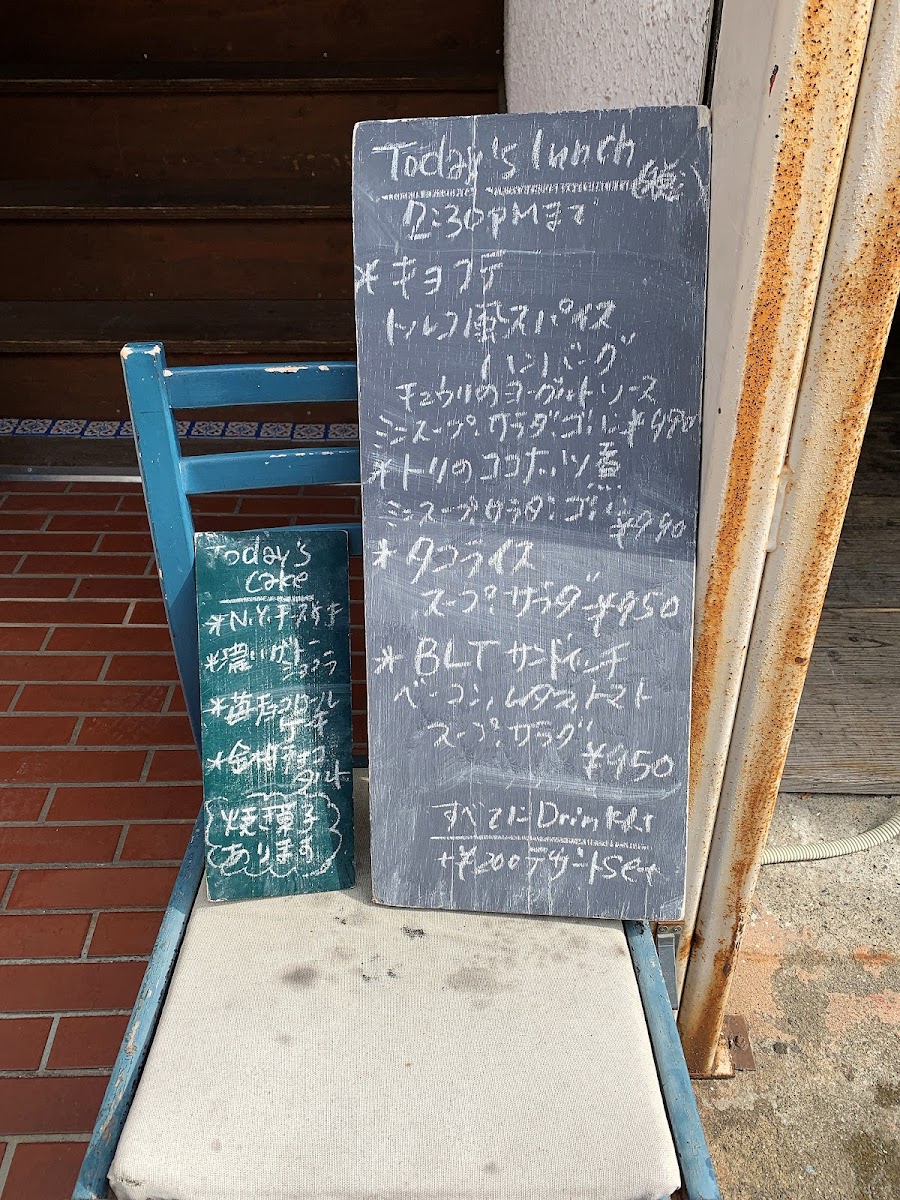 Today's lunch
2:30PMまで
*キョフテ
トルコ風スパイス
ハンバーグ
キュウリのヨーグルトソース
ミニスープ、サラダ、ゴハン
*トリのココナッツ煮
ミニスープ、サラダ、ゴハン
¥990
*タコライス
スープ、サラダ ¥950
*BLTサンドイッチ
ベーコン、レタス、トマト
スープ、サラダ
¥950
すべてにDrink付
+¥200デザートSet
Today's
cake
*N.Y.チーズケーキ
*濃いガトー
ショコラ
*苺チョコロール
ケーキ
チョコ
タルト
焼き菓子
あります